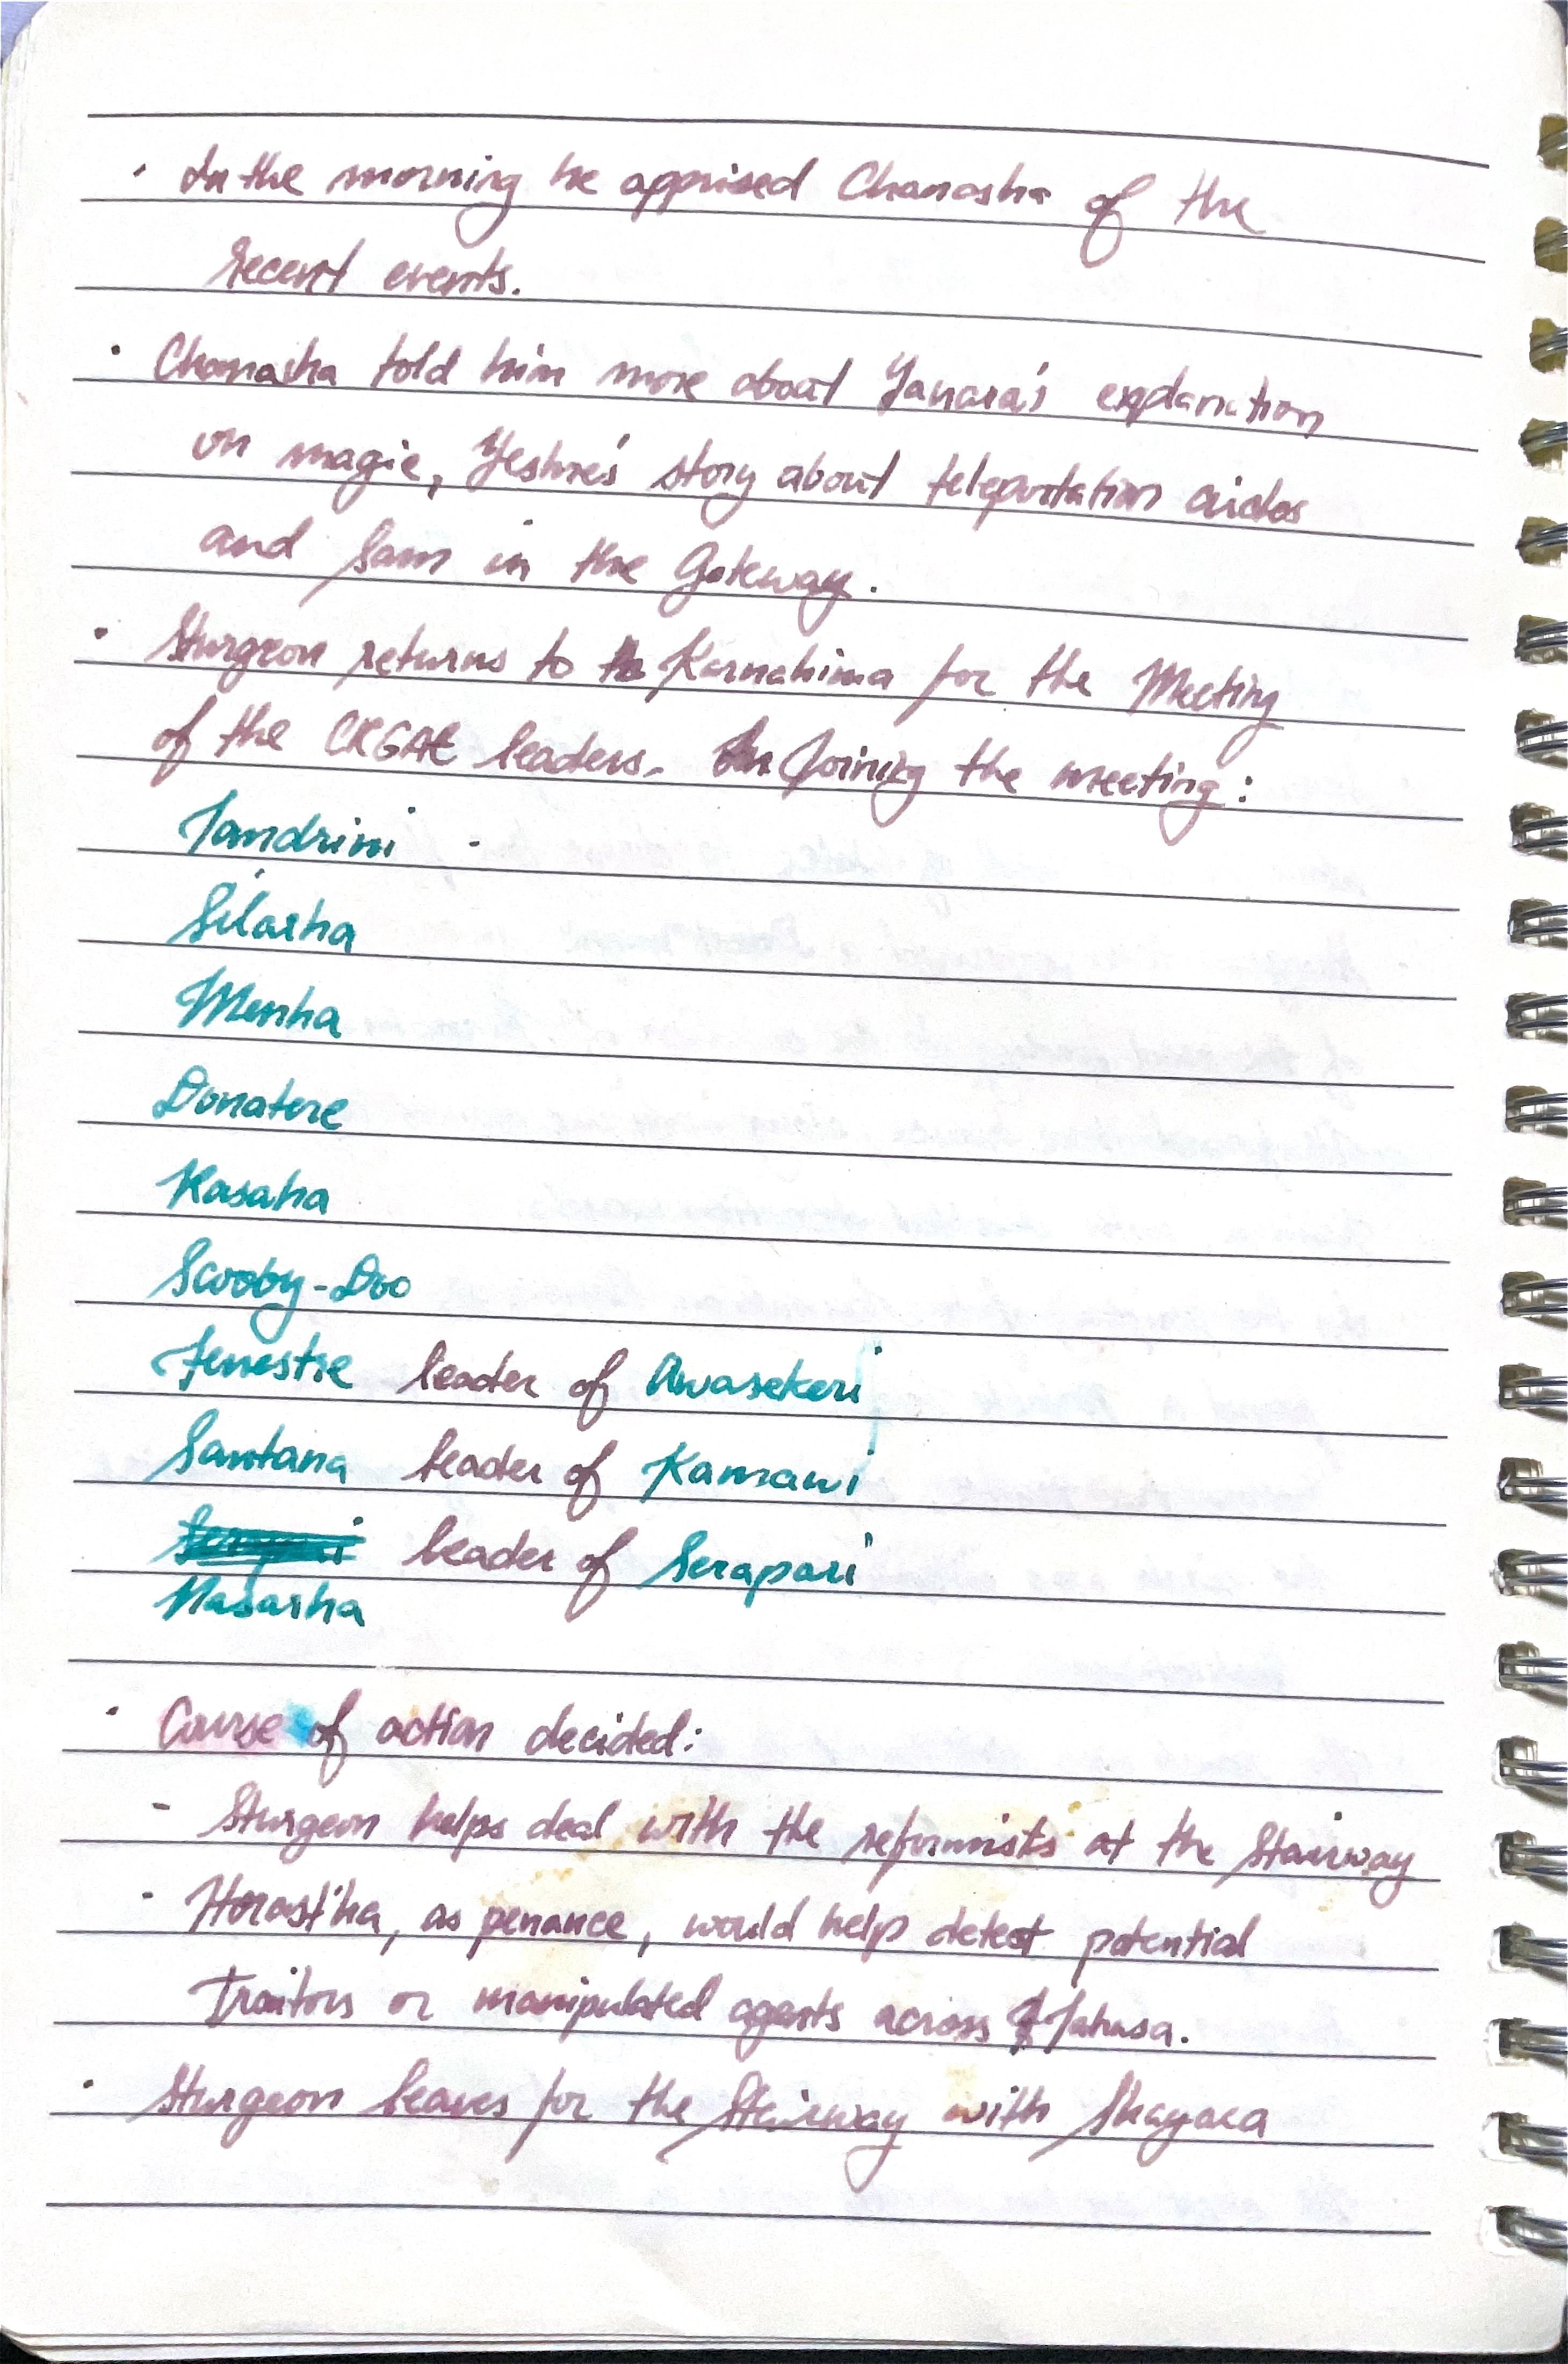 · In the morning he apprised Chanasha of the
recent events.
· Chanasha told him more about Yanara's explanation
on magic, Yeshre's story about teleportation circles
and Sam in the Gateway.
· Sturgeon returns to Karnahima for the Meeting
of the leaders. Joining the meeting:
Tandrini -
Silasha
Mensha
Donatere
Kasaha
Scooby-Doo
Fenestre leader of Awasekeri
Santana leader of Kamawi
leader of Serapari
Nasasha
· Course of action decided:
- Sturgeon helps deal with the reformists at the Stairway
- Horastha, as penance, would help detect potential
traitors or manipulated agents across Tahasa.
· Sturgeon leaves for the Stairway with Shayara